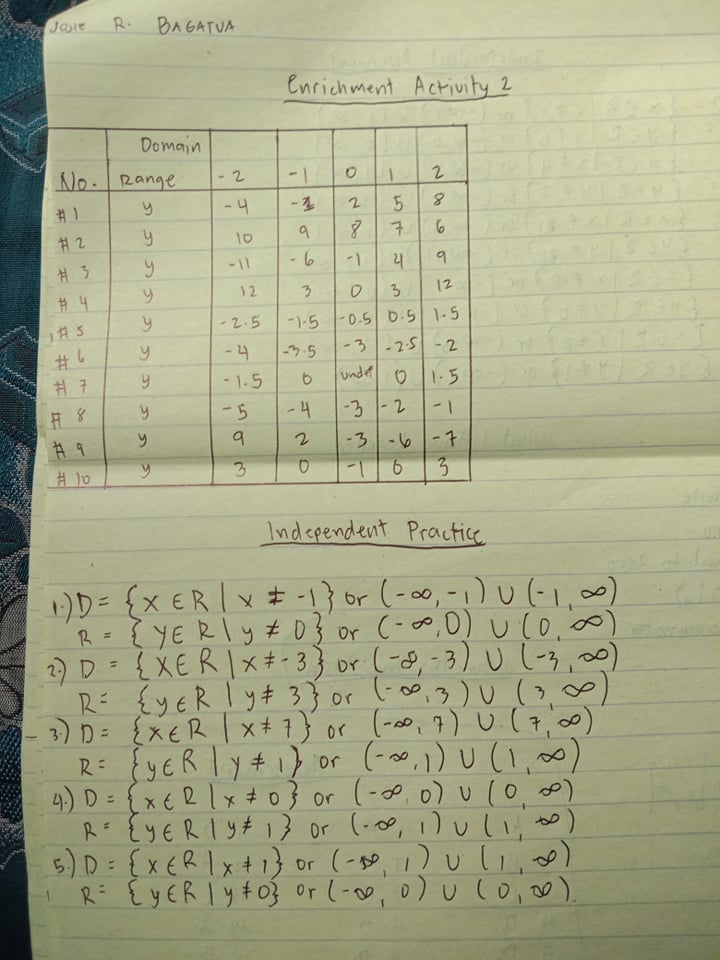 R. BAGATUA
Enrichment Activity 2
Domain
No. Range -2 -1 0 1 2
#1 y -4 -1 2 5 8
#2 y 10 9 8 7 6
#3 y -11 -6 -1 4 9
#4 y 12 3 0 3 12
#5 y -2.5 -1.5 -0.5 0.5 1.5
#6 y -4 -3.5 -3 -2.5 -2
#7 y -1.5 0 undef 0 1.5
#8 y -5 -4 -3 -2 -1
#9 y 9 2 -3 -6 -7
#10 y 3 0 -1 0 3
Independent Practice
1.) D = {x ∈ R | x ≠ -1} or (-∞, -1) ∪ (-1, ∞)
R = {y ∈ R | y ≠ 0} or (-∞, 0) ∪ (0, ∞)
2.) D = {x ∈ R | x ≠ -3} or (-∞, -3) ∪ (-3, ∞)
R = {y ∈ R | y ≠ 3} or (-∞, 3) ∪ (3, ∞)
3.) D = {x ∈ R | x ≠ 7} or (-∞, 7) ∪ (7, ∞)
R = {y ∈ R | y ≠ 1} or (-∞, 1) ∪ (1, ∞)
4.) D = {x ∈ R | x ≠ 0} or (-∞, 0) ∪ (0, ∞)
R = {y ∈ R | y ≠ 1} or (-∞, 1) ∪ (1, ∞)
5.) D = {x ∈ R | x ≠ 1} or (-∞, 1) ∪ (1, ∞)
R = {y ∈ R | y ≠ 0} or (-∞, 0) ∪ (0, ∞).